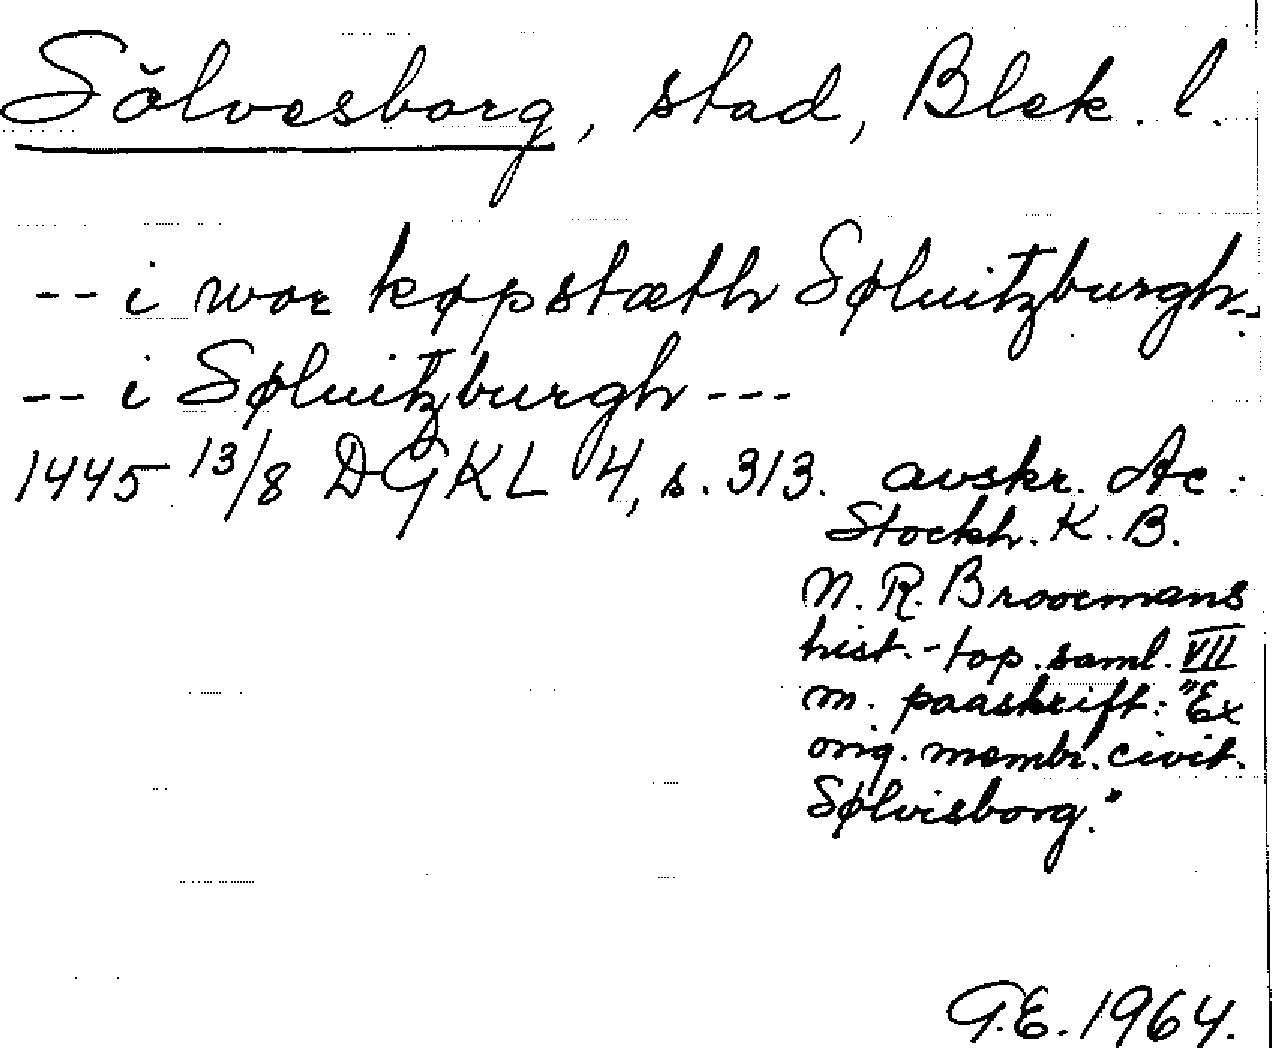 Sölvesborg, stad, Blek. l.
-- i wor køpstæth Søluitzburgh --
-- i Søluitzburgh ---
1445 13/8 DGKL 4, s. 313. avskr. Ac:
Stockh. K. B.
N. R. Broocmans
hist.-top. saml. VII
m. paaskrift: "Ex
orig. membr. civit.
Sølvisborg."
G.E. 1964.